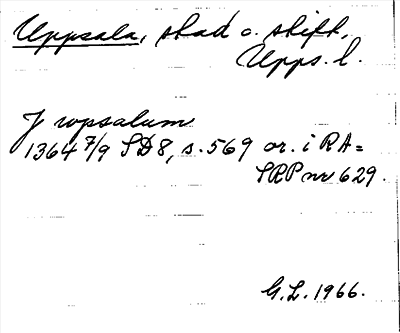 Uppsala, stad o. stift,
Upps. l.
J vpsalum
1364 7/9 SD8, s. 569 or. i RA=
SRP nr 629.
G.L. 1966.